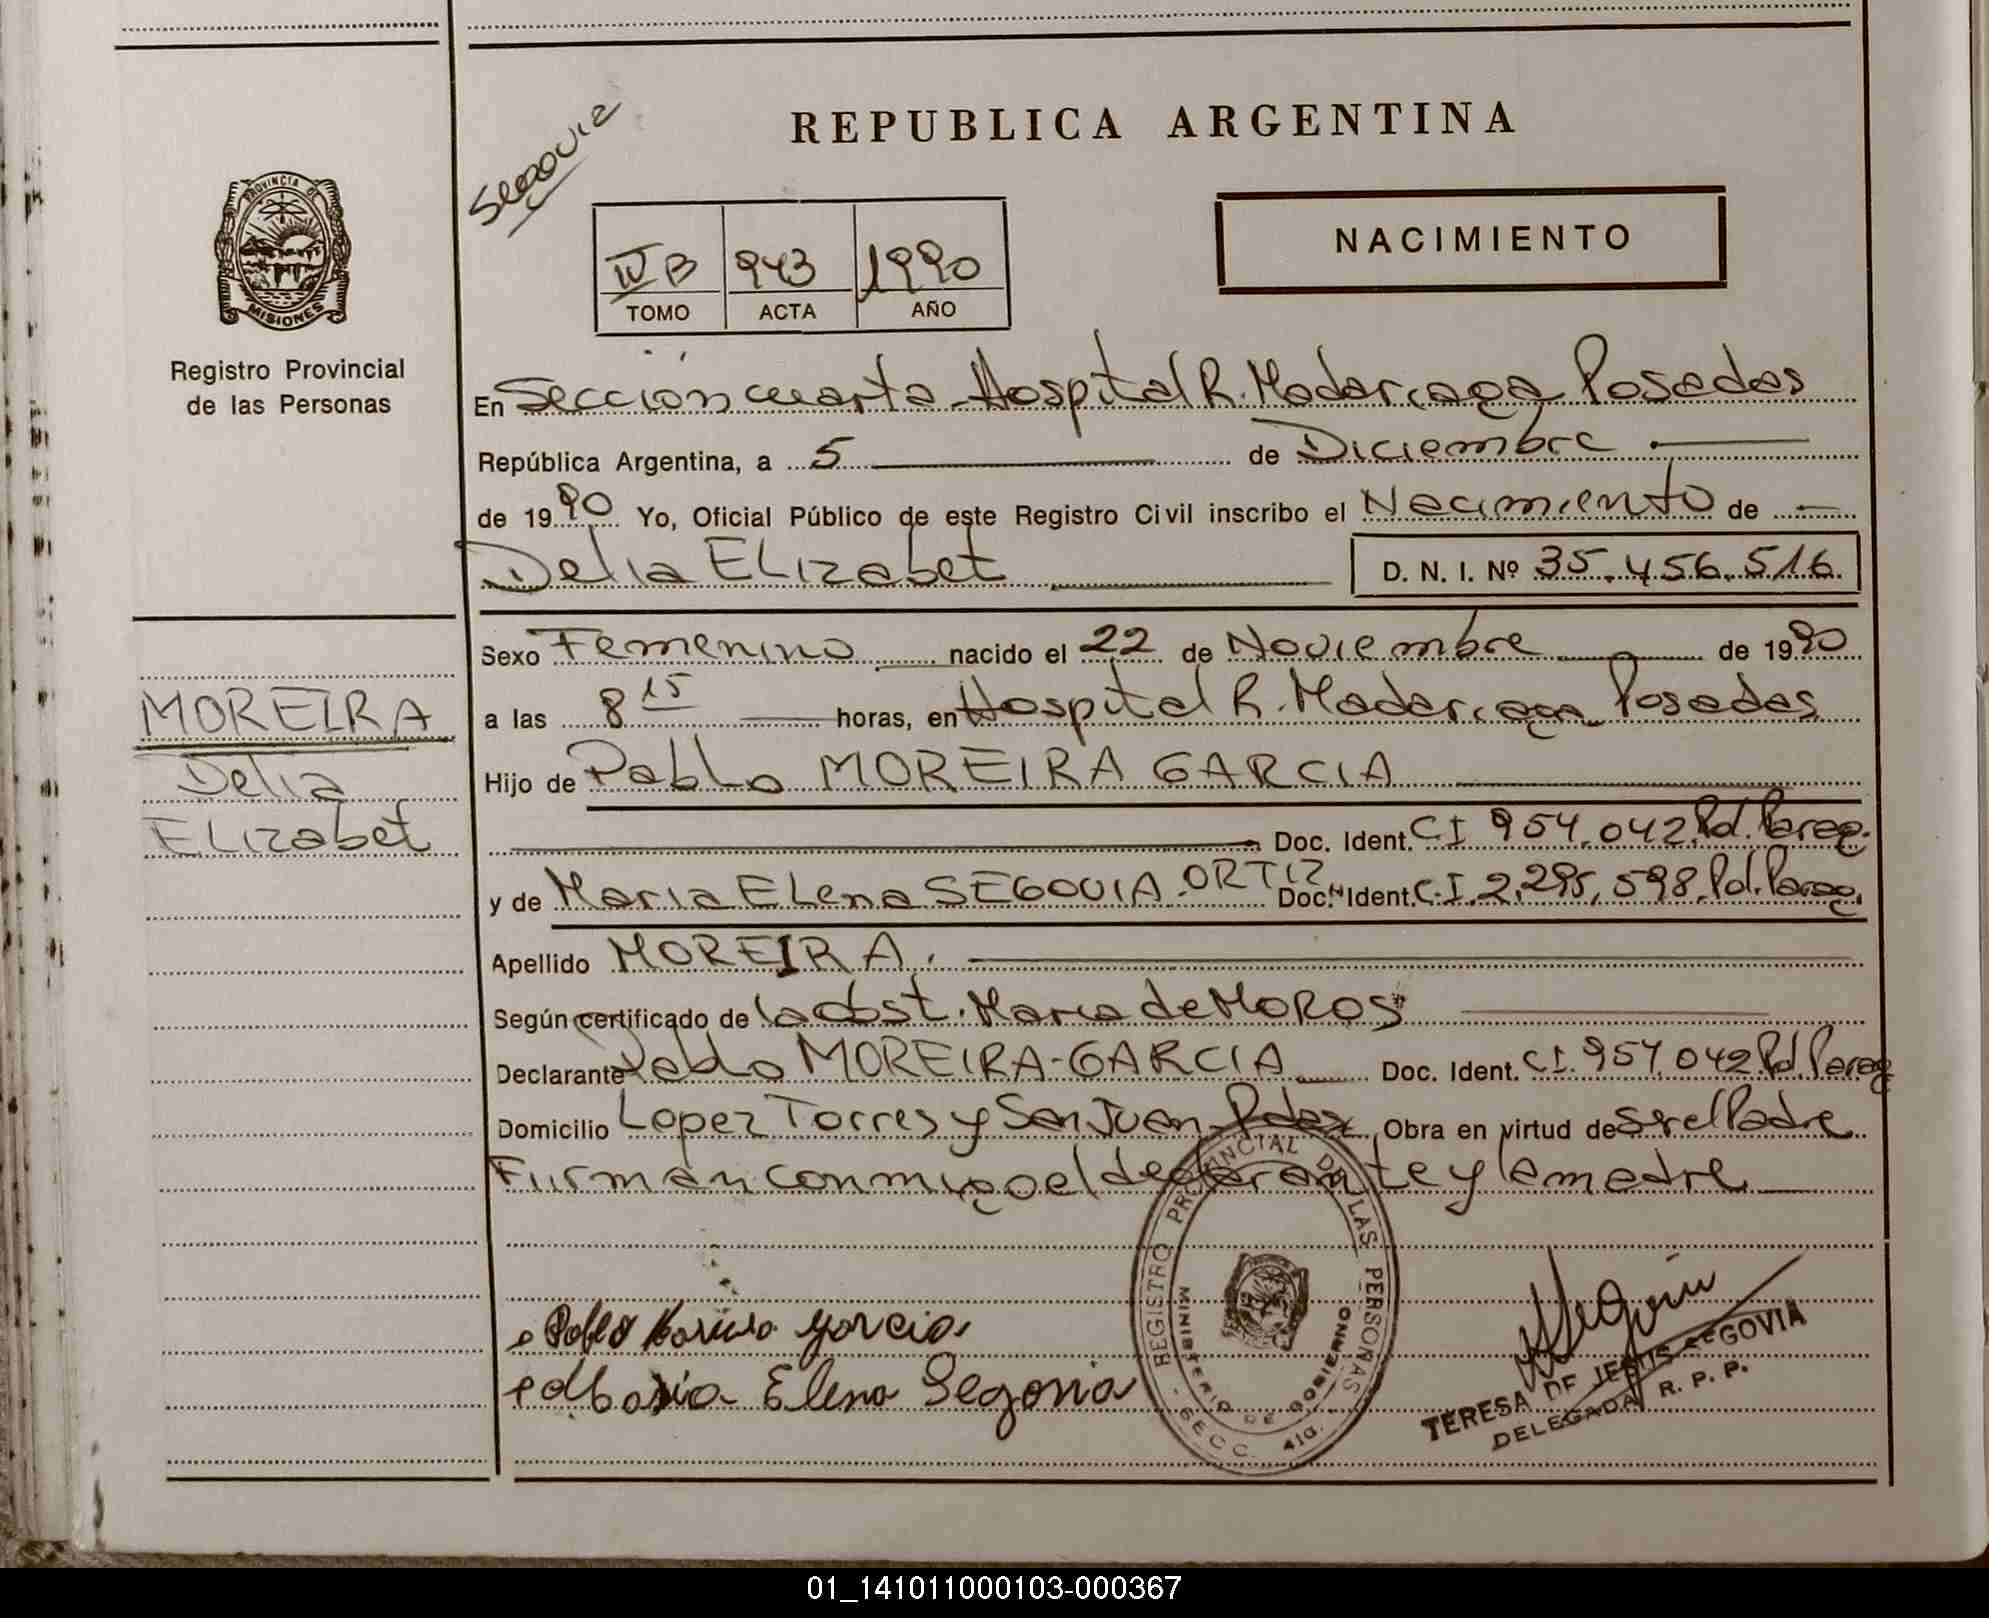 REPUBLICA ARGENTINA
Segovia
PROVINCIA DE
MISIONES
Registro Provincial
de las Personas
NACIMIENTO
IV B 943 1990
TOMO ACTA AÑO
En Sección cuarta - Hospital R. Madariaga Posadas
República Argentina, a 5 de Diciembre
de 1990 Yo, Oficial Público de este Registro Civil inscribo el Nacimiento de
Delia ELizabet D. N. I. Nº 35.456.516
Sexo Femenino nacido el 22 de Noviembre de 1990
a las 8 15 horas, en Hospital R. Madariaga Posadas
Hijo de PabLo MOREIRA GARCIA
Doc. Ident. C.I 954.042. Pol. Parag.
y de Maria ELena SEGOVIA - ORTIZ Doc. Ident. C.I. 2.295.598. Pol. Parag.
Apellido MOREIRA.
Según certificado de la obst. Maria de MOROS
Declarante Pablo MOREIRA - GARCIA Doc. Ident. C.I. 954.042 Pol. Parag
Domicilio Lopez Torres y San Juan - Pdas Obra en virtud de ser el Padre
Firman conmigo el declarante y la madre
MOREIRA
Delia
ELizabet
Pablo garcia
Maria Elena Segovia
REGISTRO PROVINCIAL DE LAS PERSONAS
MINISTERIO DE GOBIERNO
- SECC. 4ta. -
Segovia
TERESA DE JESUS SEGOVIA
DELEGADA R. P. P.
01_141011000103-000367